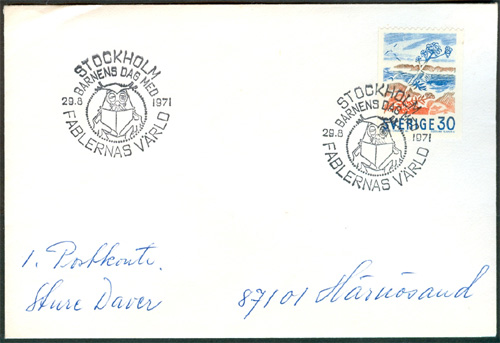 STOCKHOLM
BARNENS DAG MED
29.8 1971
FABLERNAS VÄRLD
SVERIGE 30
STOCKHOLM
BARNENS DAG
29.8 1971
FABLERNAS VÄRLD
1. Postkontr.
Sture Daver
87101 Härnösand